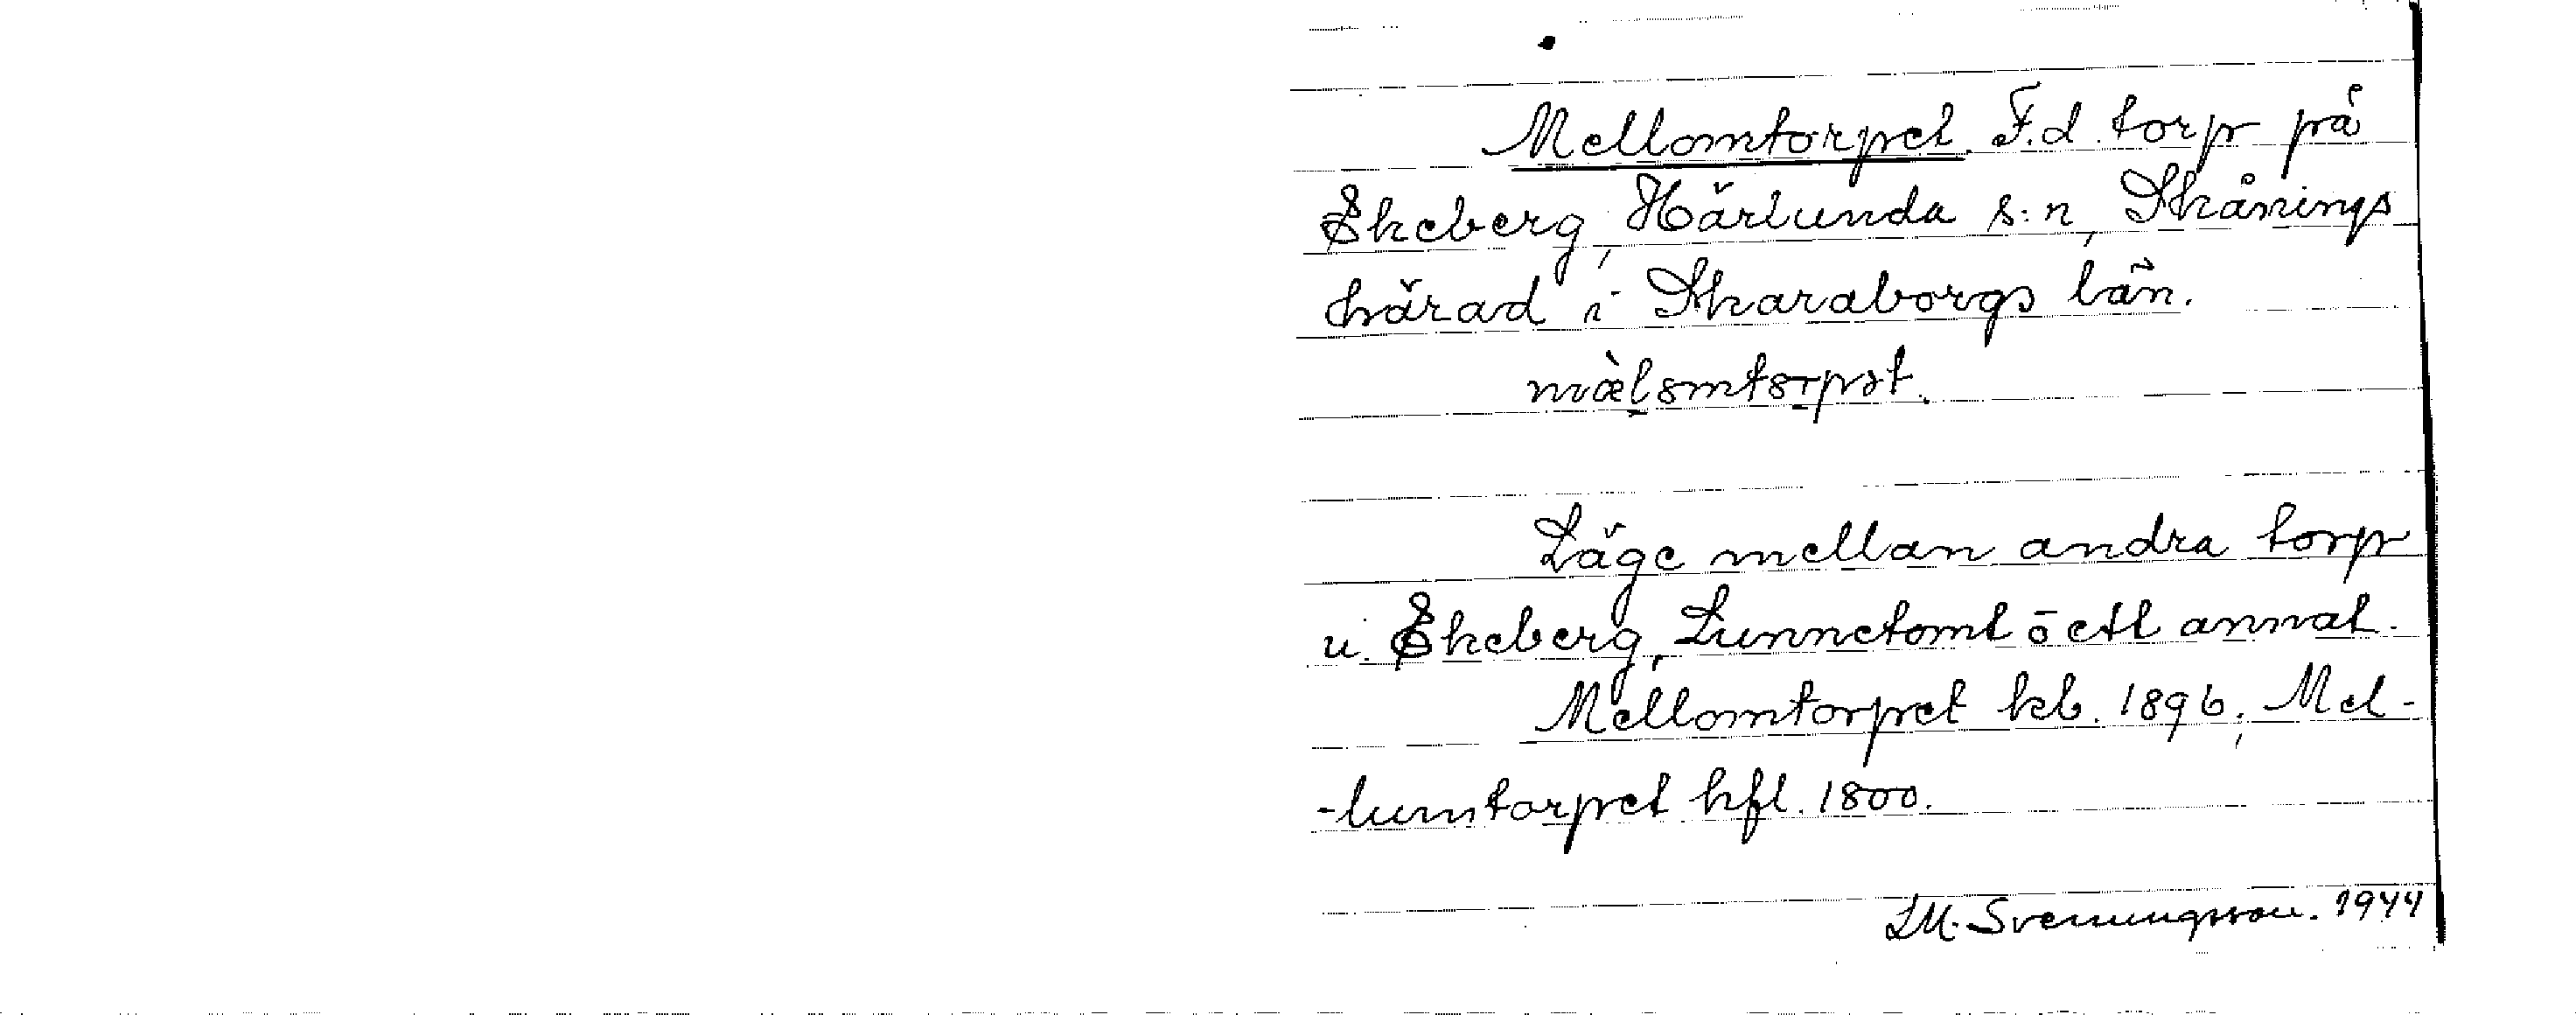 Mellomtorpet. F.d. torp på
Ekeberg, Härlunda s:n, Skånings
härad i Skaraborgs län.
Läge mellan andra torp
u. Ekeberg, Lunnetomt o ett annat.
Mellomtorpet kb. 1896; Mel-
-lumtorpet hfl. 1800.
LM. Svenungsson. 1944